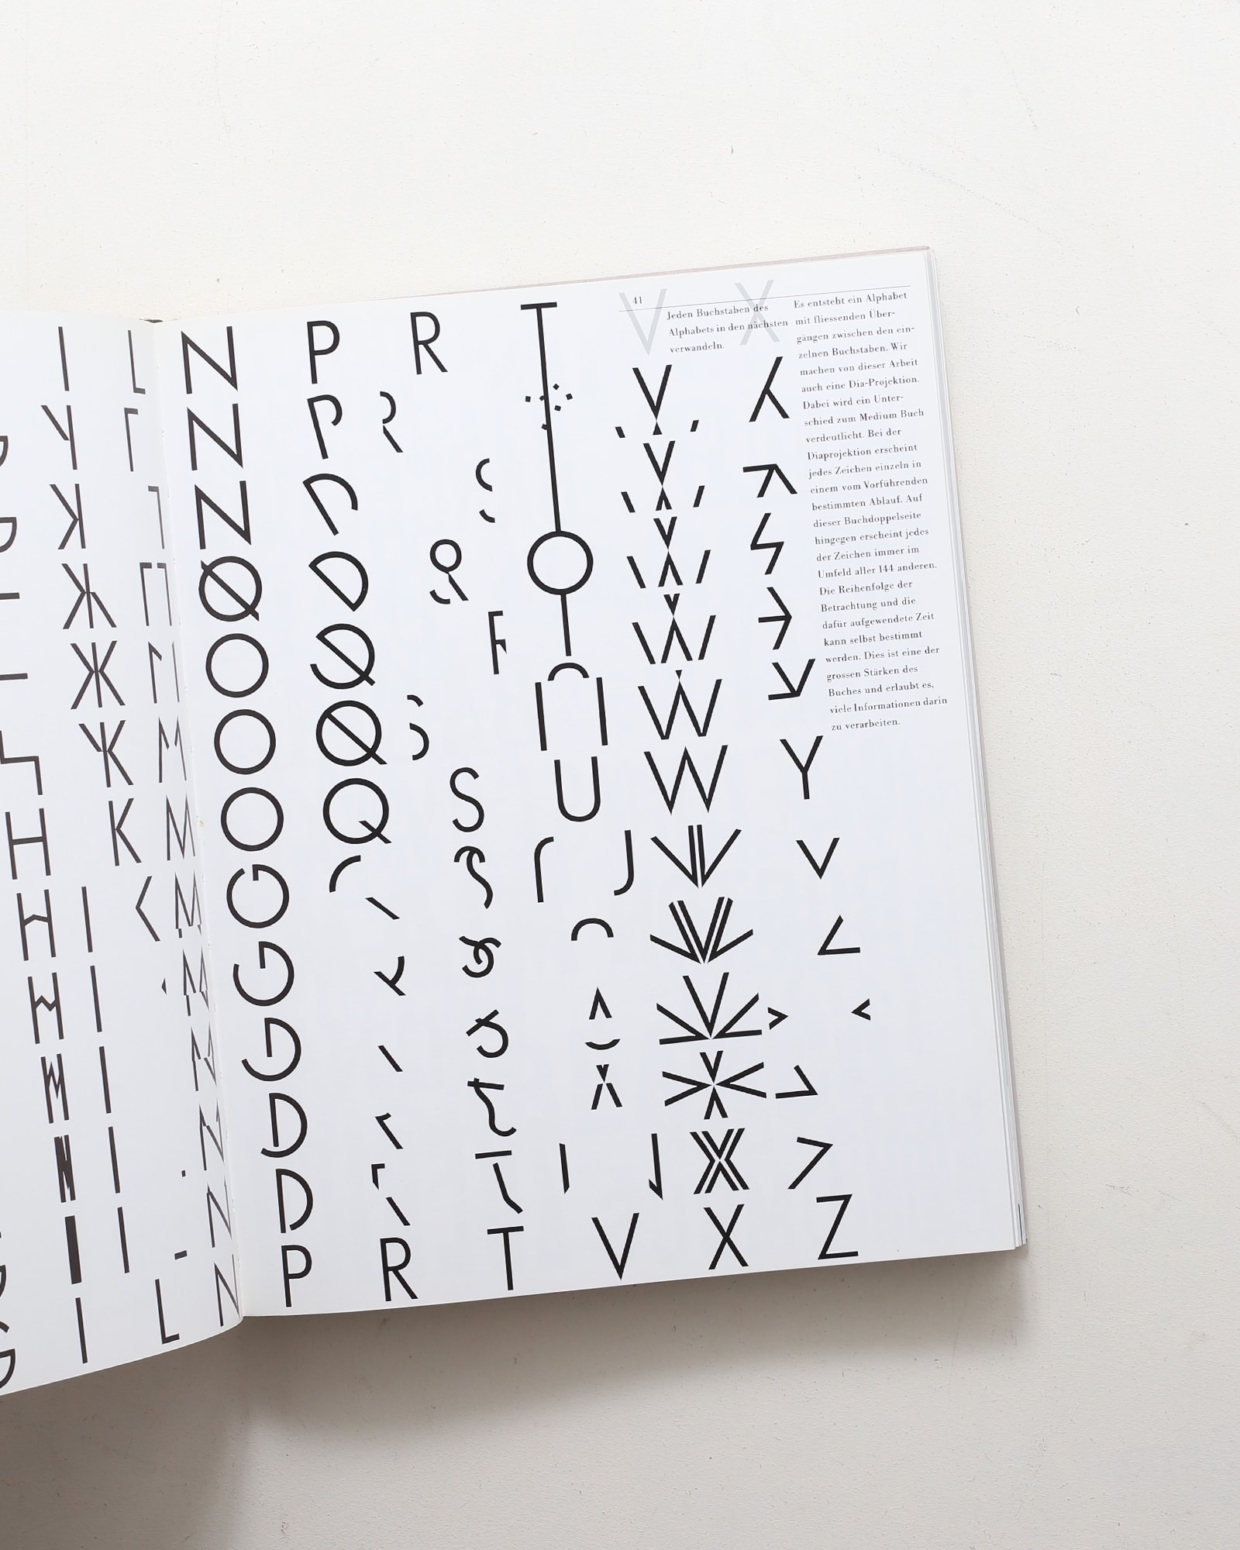 41
Jeden Buchstaben des
Alphabets in den nächsten
verwandeln.
Es entsteht ein Alphabet
mit fliessenden Über-
gängen zwischen den ein-
zelnen Buchstaben. Wir
machen von dieser Arbeit
auch eine Dia-Projektion.
Dabei wird ein Unter-
schied zum Medium Buch
verdeutlicht. Bei der
Diaprojektion erscheint
jedes Zeichen einzeln in
einem vom Vorführenden
bestimmten Ablauf. Auf
dieser Buchdoppelseite
hingegen erscheint jedes
der Zeichen immer im
Umfeld aller 144 anderen.
Die Reihenfolge der
Betrachtung und die
dafür aufgewendete Zeit
kann selbst bestimmt
werden. Dies ist eine der
grossen Stärken des
Buches und erlaubt es,
viele Informationen darin
zu verarbeiten.
N P R T V X
N P V
N
O
O Q
O Q S U W Y
G
G
D
D
I L N P R T V X Z